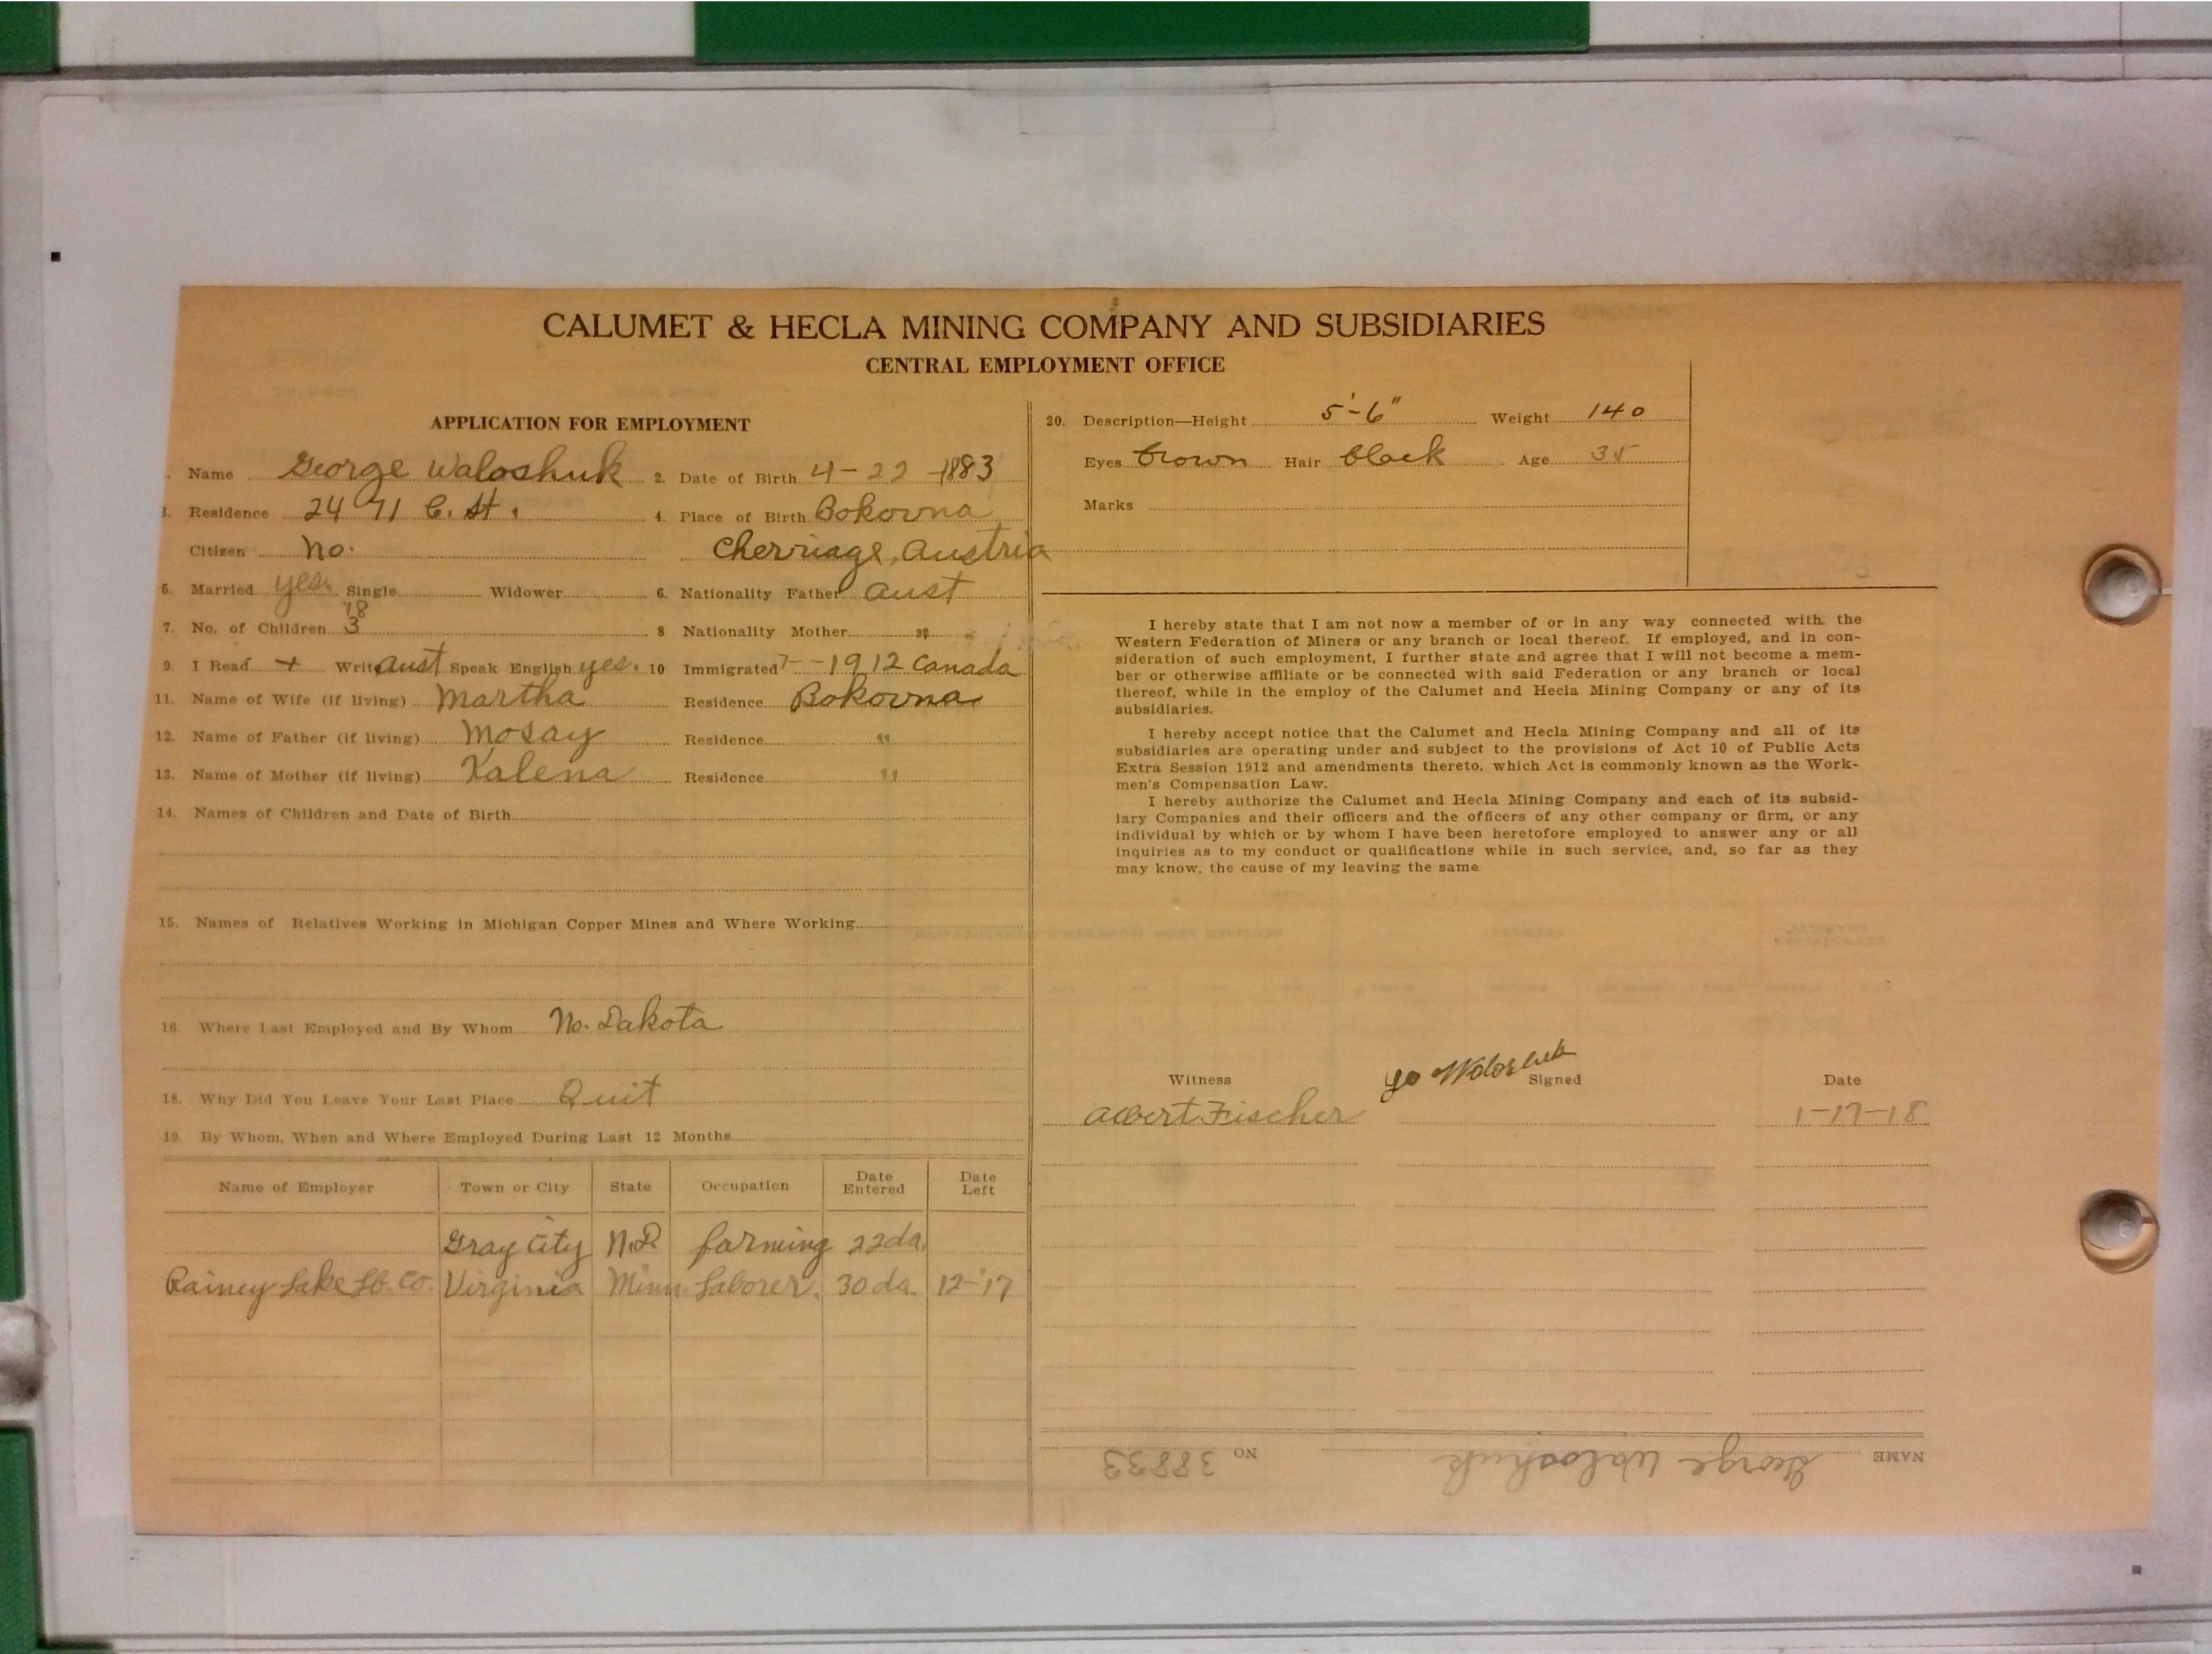 CALUMET & HECLA MINING COMPANY AND SUBSIDIARIES
CENTRAL EMPLOYMENT OFFICE
APPLICATION FOR EMPLOYMENT
1. Name George Waloshuk 2. Date of Birth 4-22-1883
3. Residence 2471 C. St. 4. Place of Birth Bokovna
Citizen No. Cherniage, Austria
5. Married yes. Single Widower 6. Nationality Father Aust
'18
7. No. of Children 3 8 Nationality Mother " "
9. I Read + Write Aust Speak English yes. 10 Immigrated 7- -1912 Canada
11. Name of Wife (if living) Martha Residence Bokovna
12. Name of Father (if living) Mosay Residence "
13. Name of Mother (if living) Kalena Residence "
14. Names of Children and Date of Birth
15. Names of Relatives Working in Michigan Copper Mines and Where Working
16. Where Last Employed and By Whom No. Dakota
18. Why Did You Leave Your Last Place Quit
19. By Whom, When and Where Employed During Last 12 Months
Name of Employer Town or City State Occupation Date Entered Date Left
Gray City N.D. farming 22 da.
Rainey Lake Lb. Co. Virginia Minn. Laborer. 30 da. 12-'17
20. Description—Height 5'-6" Weight 140
Eyes brown Hair black Age 35
Marks
I hereby state that I am not now a member of or in any way connected with the
Western Federation of Miners or any branch or local thereof. If employed, and in con-
sideration of such employment, I further state and agree that I will not become a mem-
ber or otherwise affiliate or be connected with said Federation or any branch or local
thereof, while in the employ of the Calumet and Hecla Mining Company or any of its
subsidiaries.
I hereby accept notice that the Calumet and Hecla Mining Company and all of its
subsidiaries are operating under and subject to the provisions of Act 10 of Public Acts
Extra Session 1912 and amendments thereto, which Act is commonly known as the Work-
men's Compensation Law.
I hereby authorize the Calumet and Hecla Mining Company and each of its subsid-
iary Companies and their officers and the officers of any other company or firm, or any
individual by which or by whom I have been heretofore employed to answer any or all
inquiries as to my conduct or qualifications while in such service, and, so far as they
may know, the cause of my leaving the same
Witness Signed Date
Albert Fischer Woloshuk 1-17-18
NAME George Waloshuk NO 38833